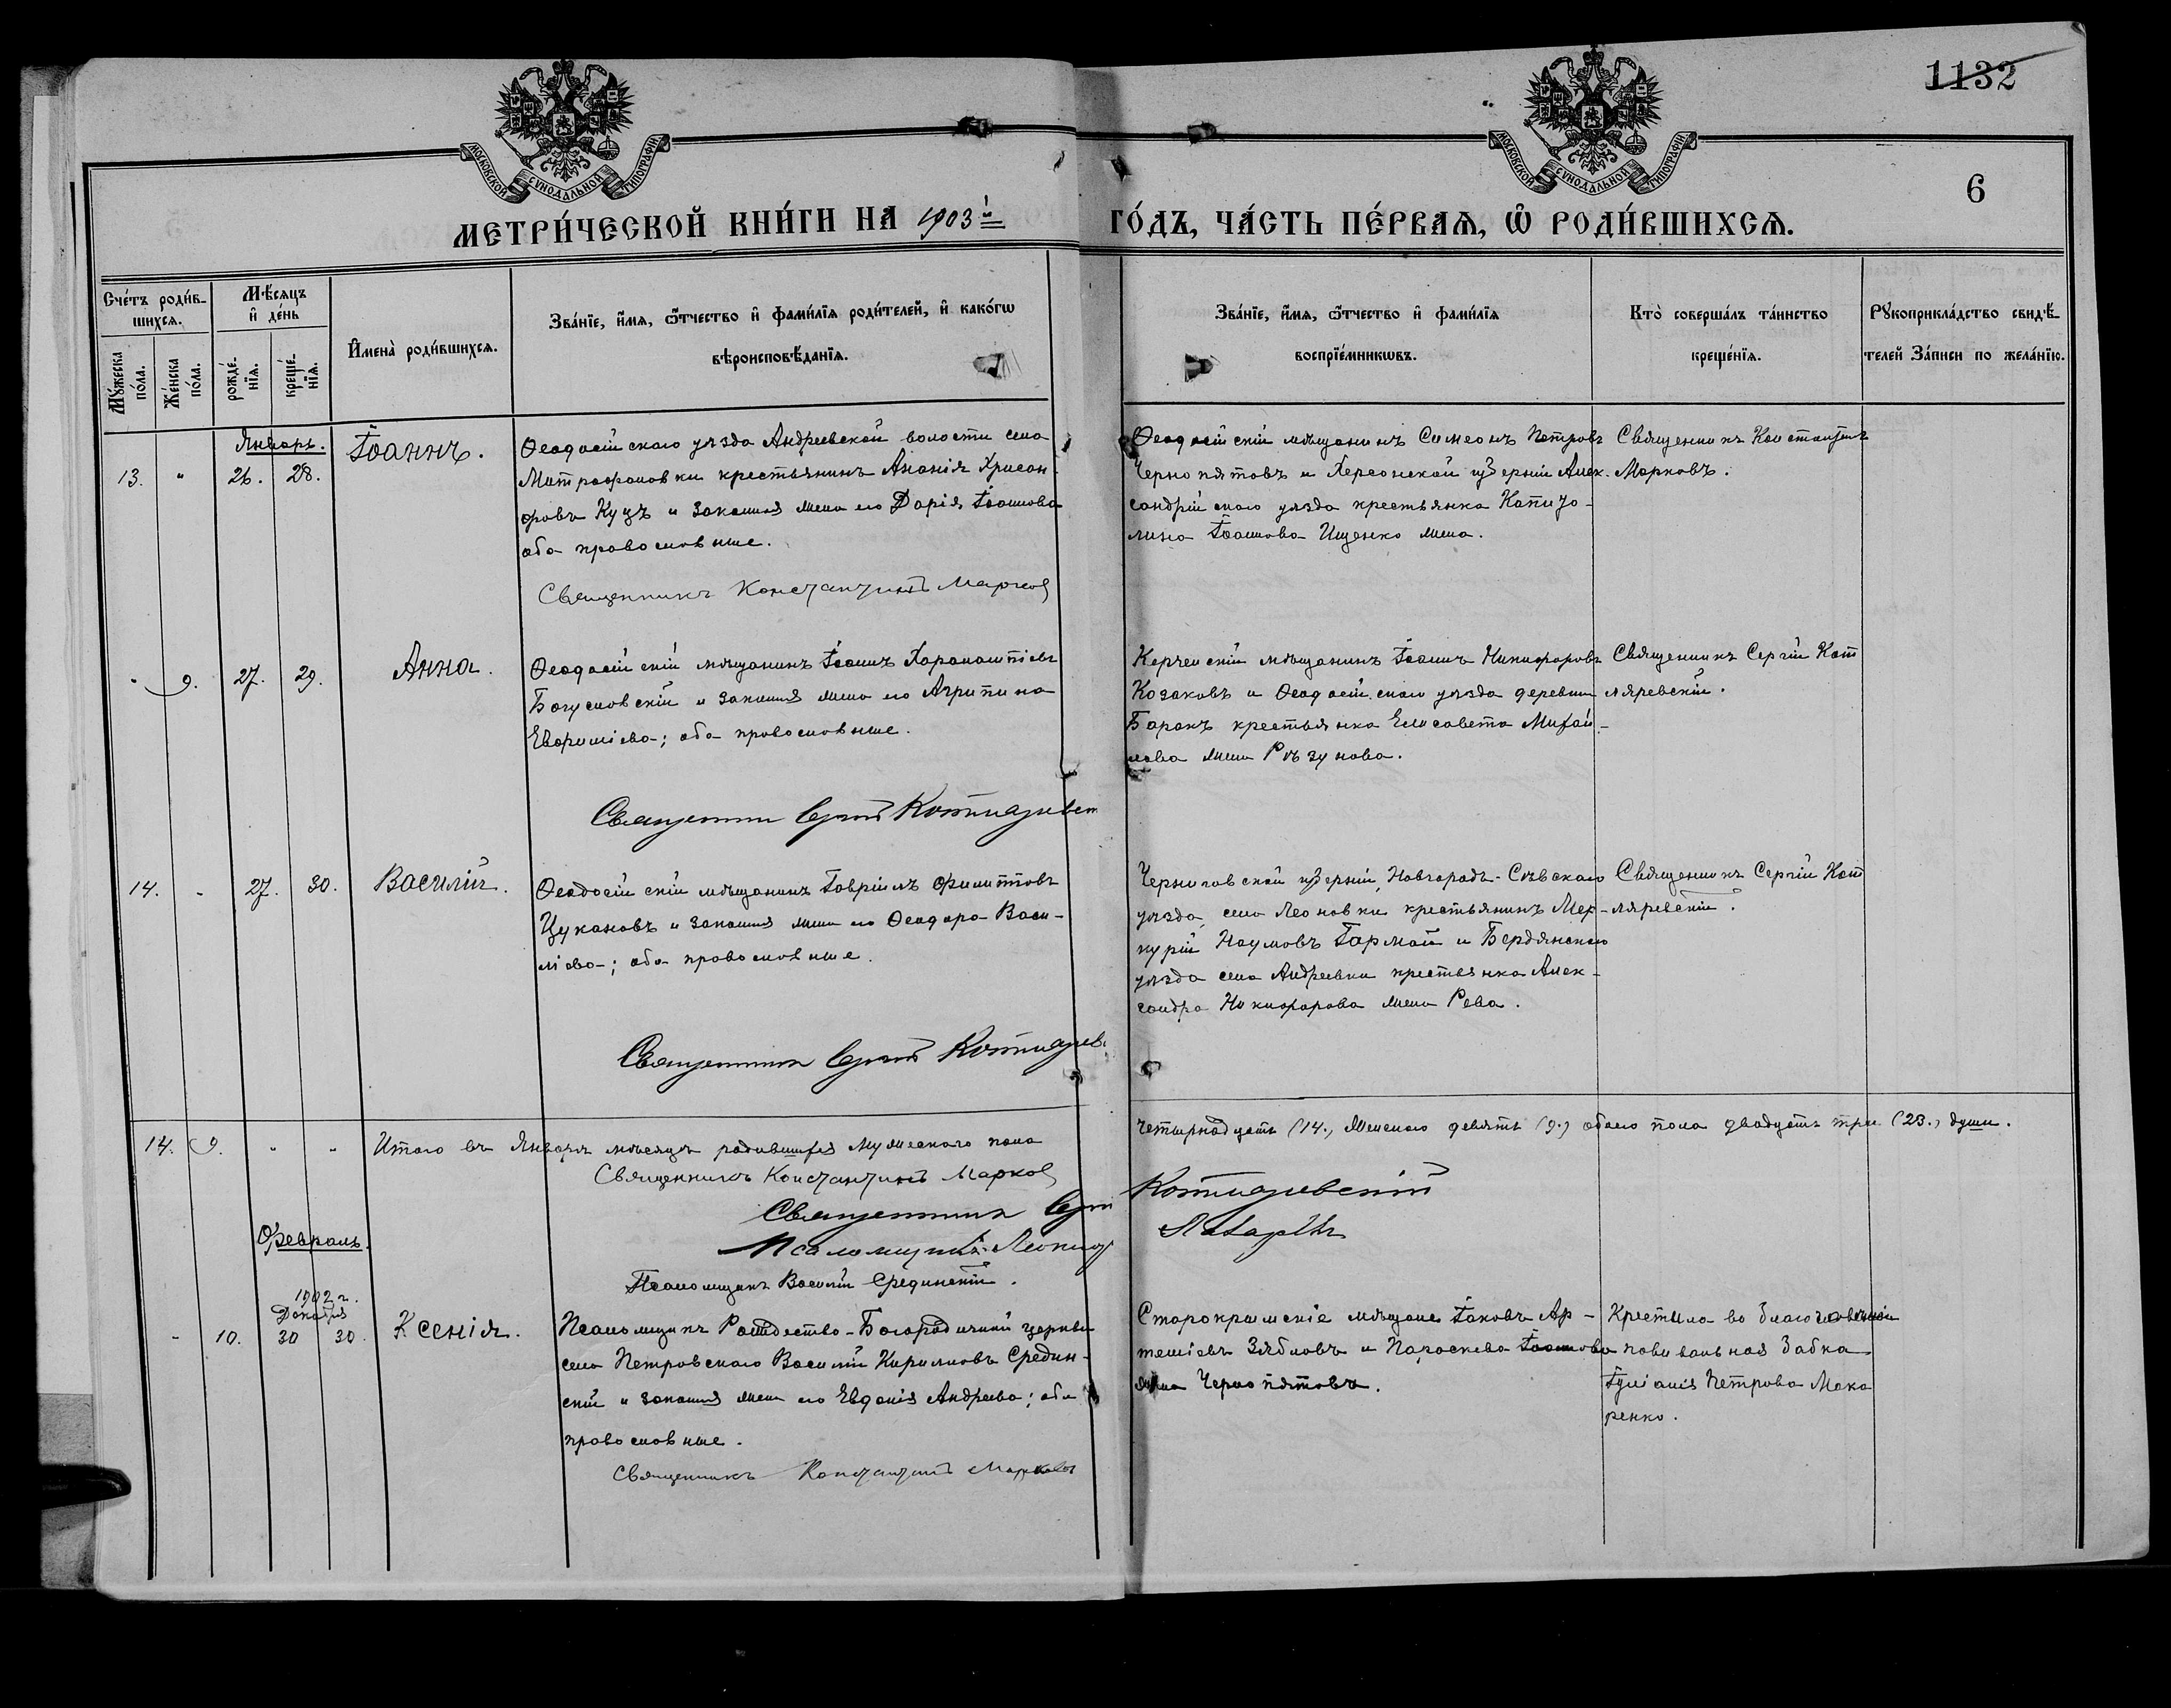 1132
МОСКОВСКОЙ СѴНОДАЛЬНОЙ ТИПОГРАФІИ.
МОСКОВСКОЙ СѴНОДАЛЬНОЙ ТИПОГРАФІИ.
6
МЕТРИ́ЧЕСКОЙ КНИ́ГИ НА 1903й ГО́ДЪ, ЧА́СТЬ ПЕ́РВАЯ, Ѡ҆ РОДИ́ВШИХСЯ.
Сче́тъ роди́в-
шихся.
Мѣ́сяцъ
и҆ де́нь
Мꙋ́жеска
по́ла.
Же́нска
по́ла.
рожде́-
нїя.
креще́-
нїя.
И҆мена̀ роди́вшихся.
Зва́нїе, и҆́мя, ѻ҆́тчество и҆ фами́лїя роди́телей, и҆ како́гѡ
вѣроисповѣ́данїя.
Зва́нїе, и҆́мя, ѻ҆́тчество и҆ фами́лїя
воспрїе́мникѡвъ.
Кто̀ соверша́лъ та́инство
креще́нїя.
Рꙋкоприкла́дство свидѣ́-
телей За́писи по жела́нїю.
Январь.
13. " 26. 28. Іоаннъ.
Ѳеодосійскаго уѣзда Андреевской волости села
Митрофановки крестьянинъ Ананія Хрисан-
фовъ Куцъ и законная жена его Дарія Іоаннова
оба православные.
Священникъ Константинъ Марков
Ѳеодосійскій мѣщанинъ Симеонъ Петровъ
Чернопятовъ и Херсонской губерніи Алек-
сандрійскаго уѣзда крестьянка Капито-
лина Іоаннова Ищенко жена.
Священникъ Константинъ
Марковъ.
" 9. 27. 29. Анна.
Ѳеодосійскій мѣщанинъ Іоаннъ Харалампіевъ
Богуславскій и законная жена его Агрипина
Евфиміева; оба православные.
Священникъ Сергій Котляревск
Керченскій мѣщанинъ Іоаннъ Никифоровъ
Козаковъ и Ѳеодосійскаго уѣзда деревни
Баракъ крестьянка Елисавета Михай-
лова жена Рѣзунова.
Священникъ Сергій Кот
ляревскій.
14. " 27. 30. Василій.
Ѳеодосійскій мѣщанинъ Гавріилъ Филипповъ
Цукановъ и законная жена его Ѳеодора Васи-
ліева; оба православные.
Священникъ Сергій Котлярев
Черниговской губерніи, Новгородъ-Сѣвскаго
уѣзда, села Леоновки крестьянинъ Мер-
курій Наумовъ Гармай и Бердянскаго
уѣзда села Андреевки крестьянка Алек-
сандра Никифорова жена Рева.
Священникъ Сергій Кот
ляревскій.
14. 9. " " Итого въ Январѣ мѣсяцѣ родившихся мужескаго пола четырнадцать (14.), женскаго девять (9.) обоего пола двадцать три (23.) души.
Священникъ Константинъ Марков
Священникъ Сергій Котляревскій
Псаломщикъ Леонид
Псаломщикъ Василій Срединскій.
Февраль.
1902 г.
Декабря
" 10. 30 30. Ксенія.
Псаломщикъ Рождество-Богородичной церкви
села Петровскаго Василій Кириловъ Средин-
скій и законная жена его Евдокія Андреева; оба
православные.
Священникъ Константинъ Марковъ
Старокрымскіе мѣщане Іаковъ Ар-
темиевъ Зябловъ и Параскева Іоаннова
жена Чернопятовъ.
Крестила по благословенію
повивальная бабка
Іуліанія Петрова Мака
ренко.